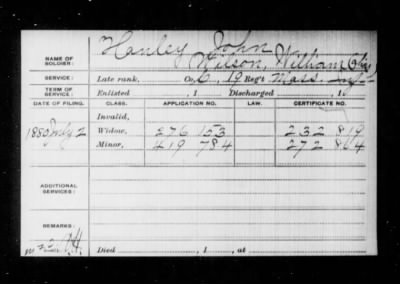 Hanley, John
NAME OF SOLDIER: Wilson, William (Alias)
SERVICE: Late rank, Co. C, 19 Reg't Mass. Inf
TERM OF SERVICE: Enlisted , 1 Discharged , 1
DATE OF FILING. CLASS. APPLICATION NO. LAW. CERTIFICATE NO.
Invalid,
1880 July 2 Widow, 276 153 232 819
Minor, 419 784 272 864
ADDITIONAL SERVICES:
REMARKS:
Died , 1 , at